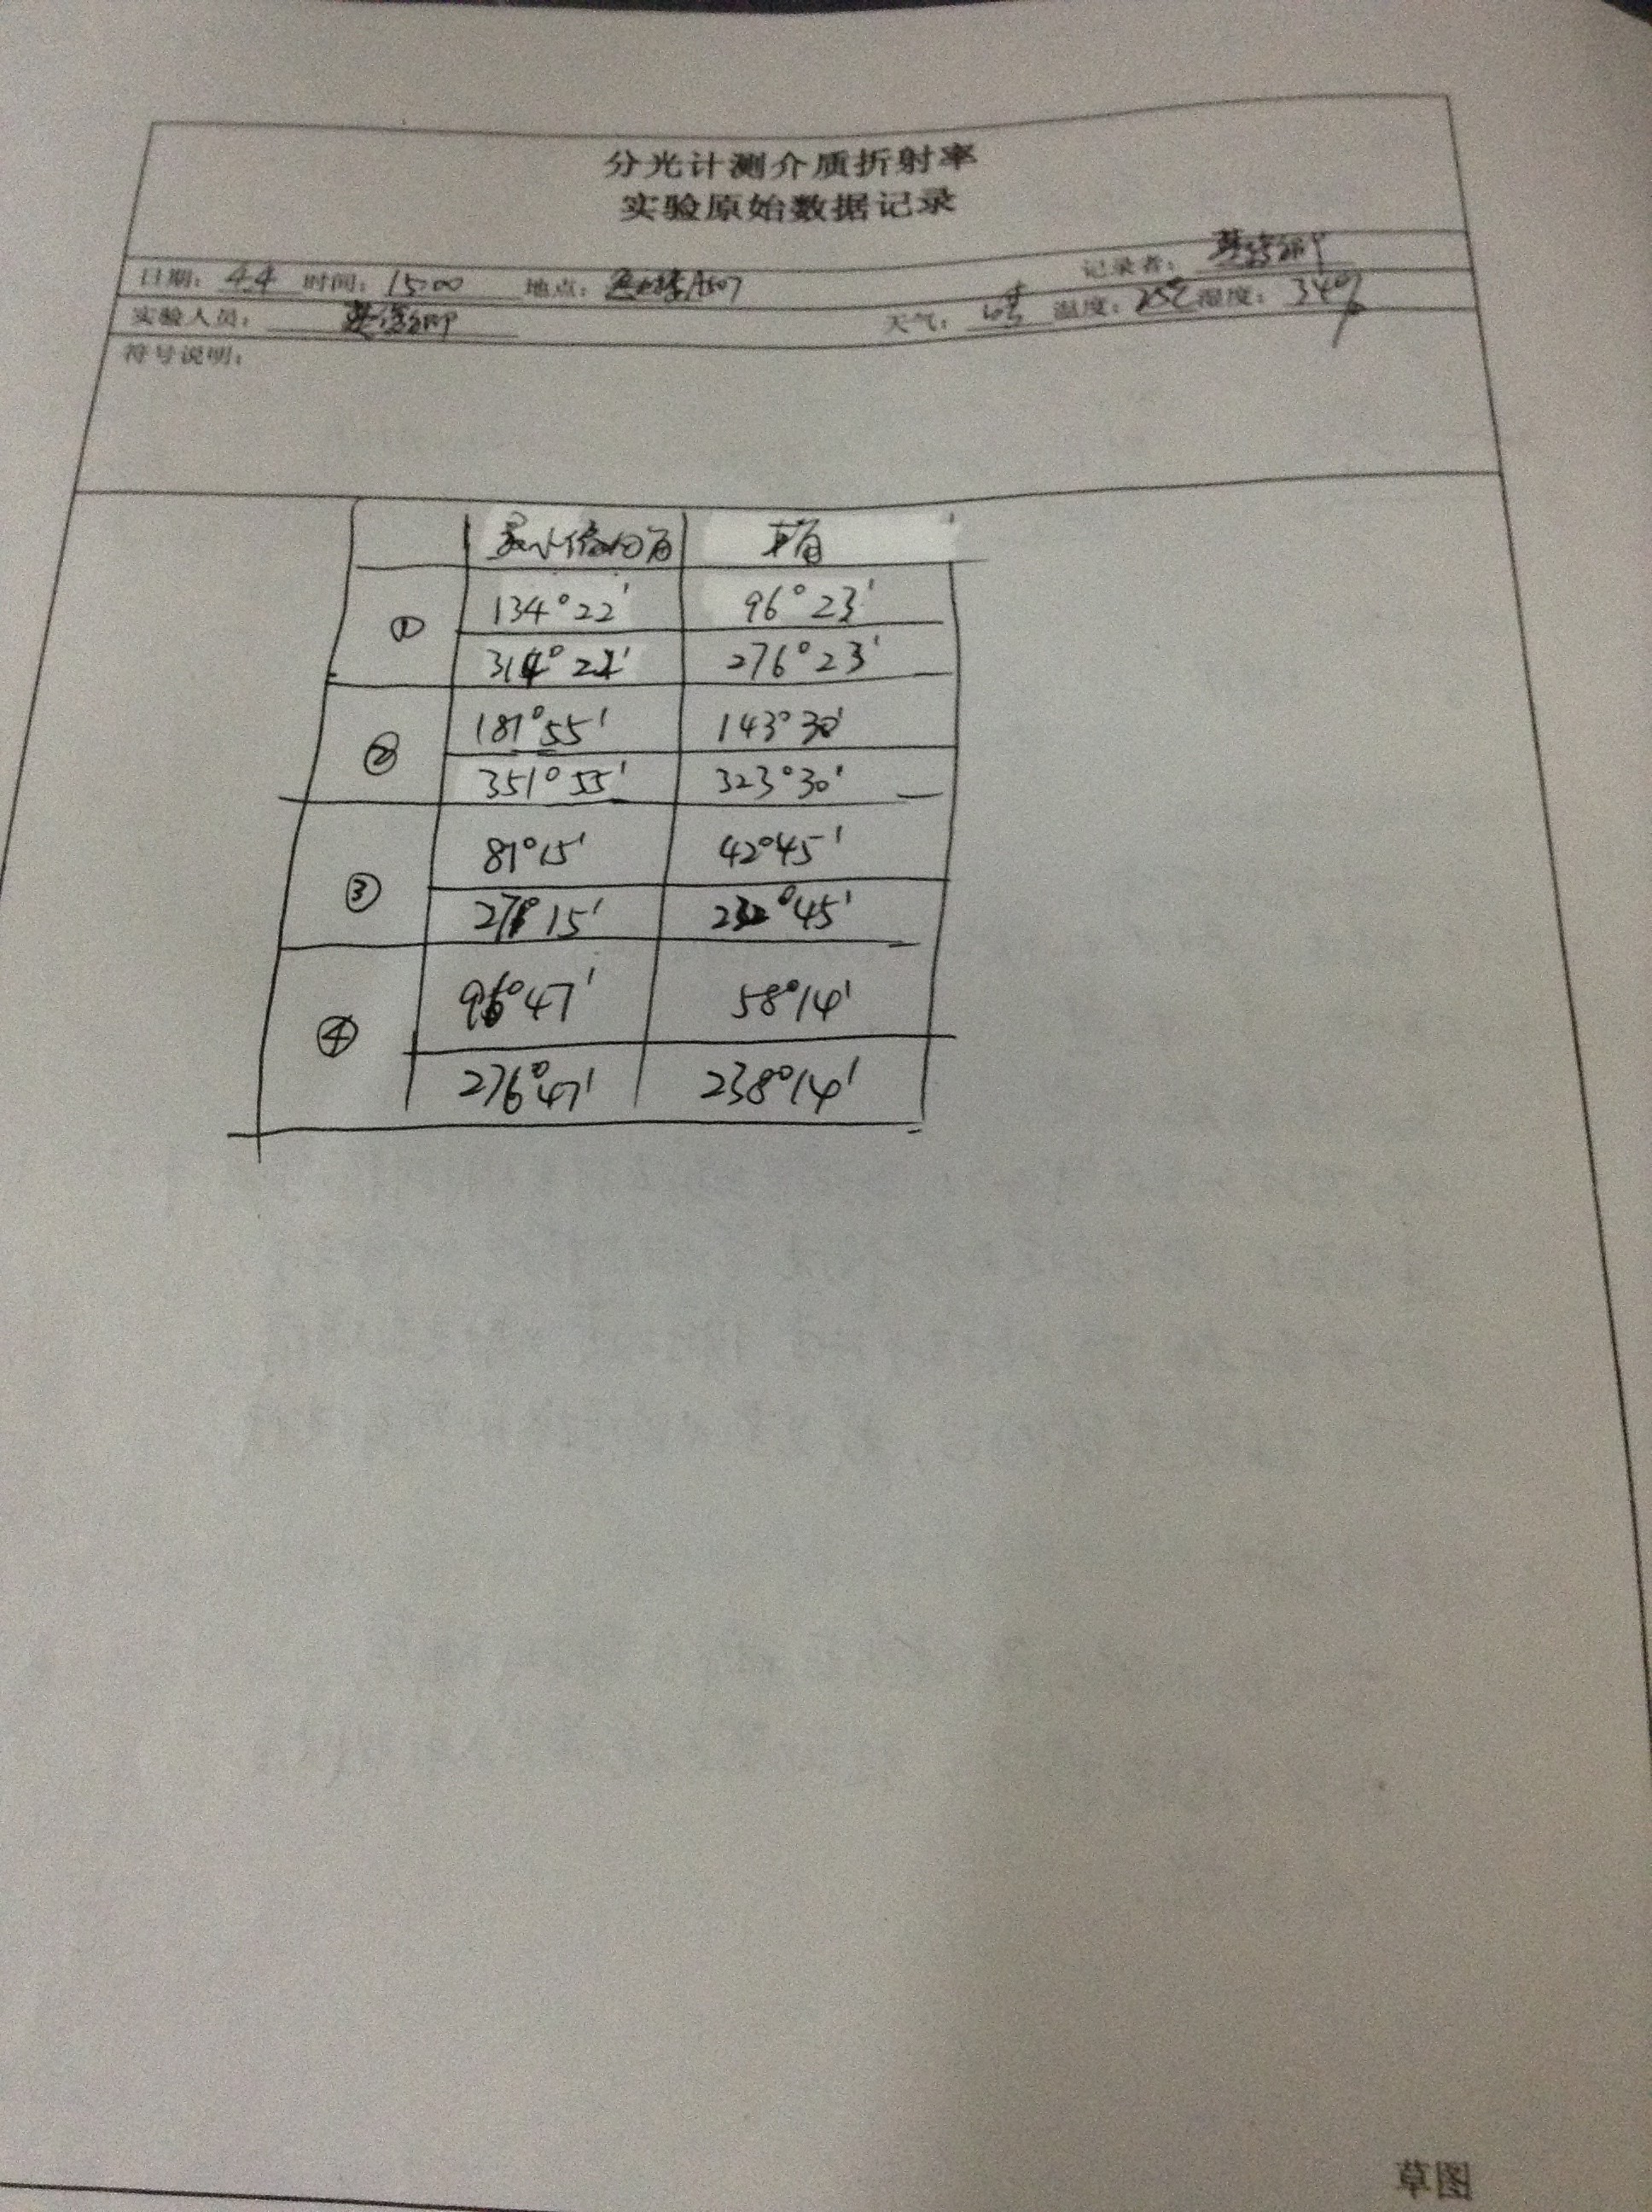 分光计测介质折射率
实验原始数据记录
日期: 4.4 时间: 15:00 地点: A507 记录者:
实验人员: 天气: 晴 温度: 25℃ 湿度: 34%
符号说明:
最小偏向角
① 134°22′ 96°23′
314°22′ 276°23′
② 181°55′ 143°30′
351°55′ 323°30′
③ 81°15′ 42°45′
15′ 232°45′
④ 96°47′ 58°14′
276°47′ 238°14′
草图